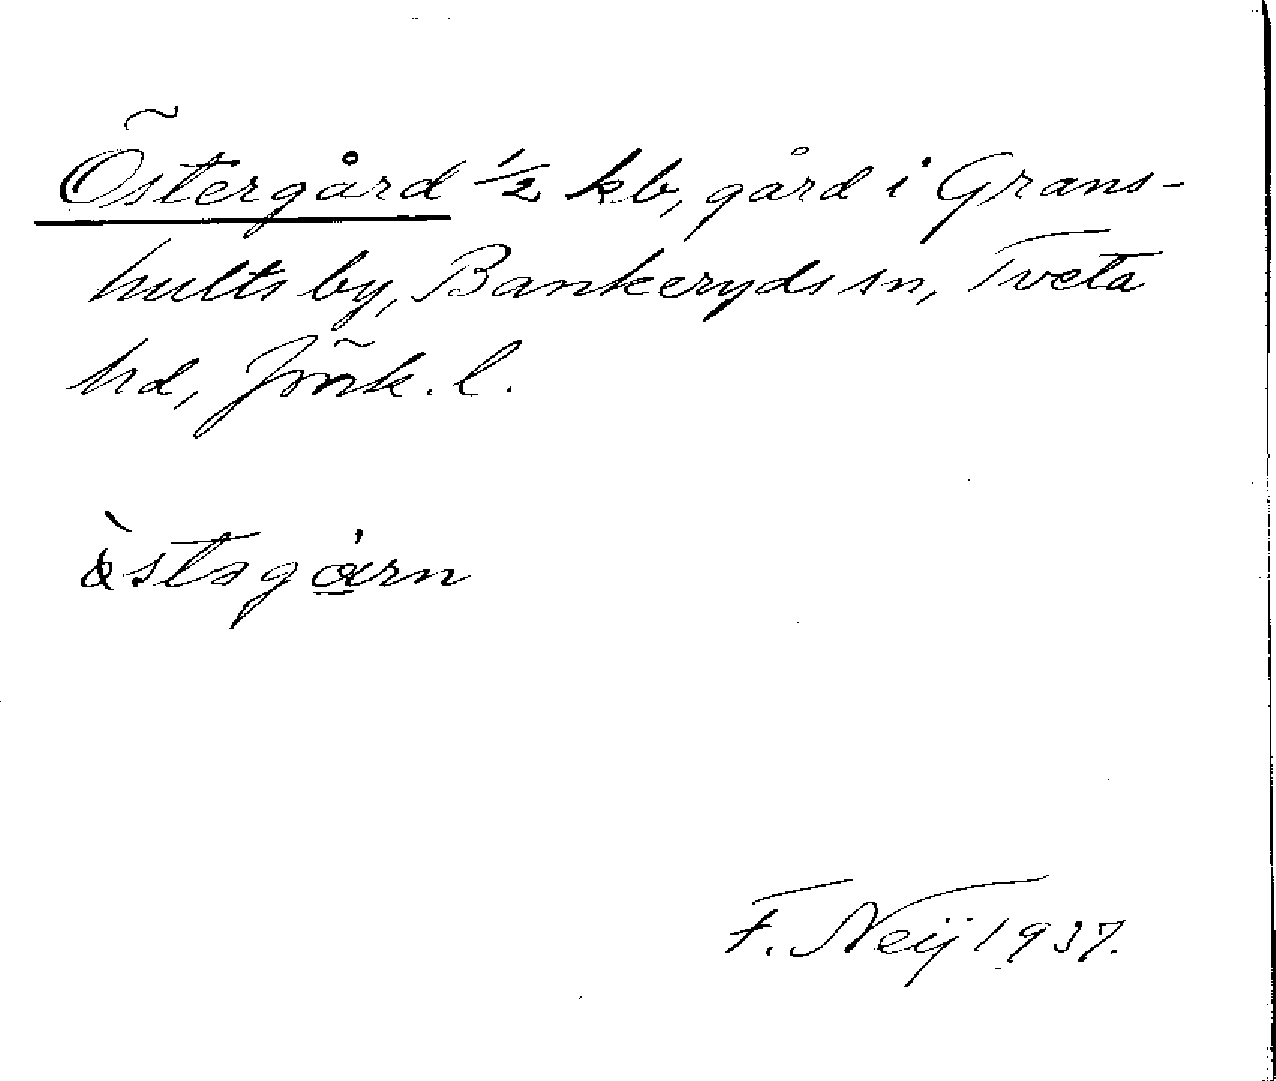 Östergård ½ kb, gård i Grans-
hults by, Bankeryds sn, Tveta
hd, Jönk. l.
F. Neij 1937.